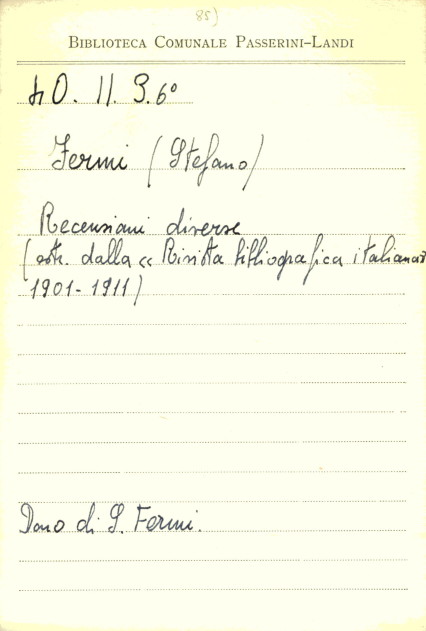 85)
BIBLIOTECA COMUNALE PASSERINI-LANDI
40. II. 9. 6°
Fermi (Stefano)
Recensioni diverse
(estr. dalla « Rivista bibliografica italiana»
1901-1911)
Dono di S. Fermi.